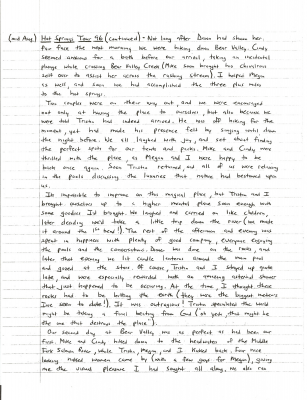 (mid Aug) Hot Springs Tour 96 (continued) - Not long after Dawn had shown her
fair face the next morning we were hiking down Bear Valley. Cindy
seemed anxious for a bath before our arrival, taking an accidental
plunge while crossing Bear Valley Creek (Mike soon brought his chivalrous
self over to assist her across the rushing stream). I helped Megan
as well, and soon we had accomplished the three plus miles
to the hot springs.
Two couples were on their way out and we were encouraged
not only at having the place to ourselves, but also because we
were told Tristan had indeed arrived. He was off hiking for the
moment, yet had made his presence felt by singing until dawn
the night before. We all laughed with joy, and set about finding
the perfect spots for our tents and packs. Mike and Cindy were
thrilled with the place, as Megan and I were happy to be
back once again. Soon Tristan returned, and all of us were relaxing
in the pools discussing the luxuries that nature had bestowed upon
us.
It's impossible to improve on this magical place, but Tristan and I
brought ourselves up to a higher mental plane soon enough with
some goodies I'd brought. We laughed and carried on like children,
later deciding we'd take a little trip down the river (we made
it around the 1st bend!). The rest of the afternoon and evening was
spent in happiness with plenty of good company, everyone enjoying
the pools and the conversation. Songs were done on the rocks, and
later that evening we lit candle lanterns around the main pool
and gazed at the stars. Of course, Tristan and I stayed up quite
late, and were especially rewarded with an amazing asteroid shower
that just happened to be occurring. At the time, I thought these
rocks had to be hitting the earth (they were the biggest meteors
I've seen to date!). It was outrageous! Tristan speculated the world
might be taking a final beating from God ("oh yeah, this might be
the one that destroys the place").
Our second day at Bear Valley was as perfect as had been our
first. Mike and Cindy hiked down to the headwaters of the Middle
Fork Salmon River, while Tristan, Megan, and I kicked back. Four nice
looking naked women came by (with a few guys for Megan), giving
me the visual pleasure I had sought all along. We also ran